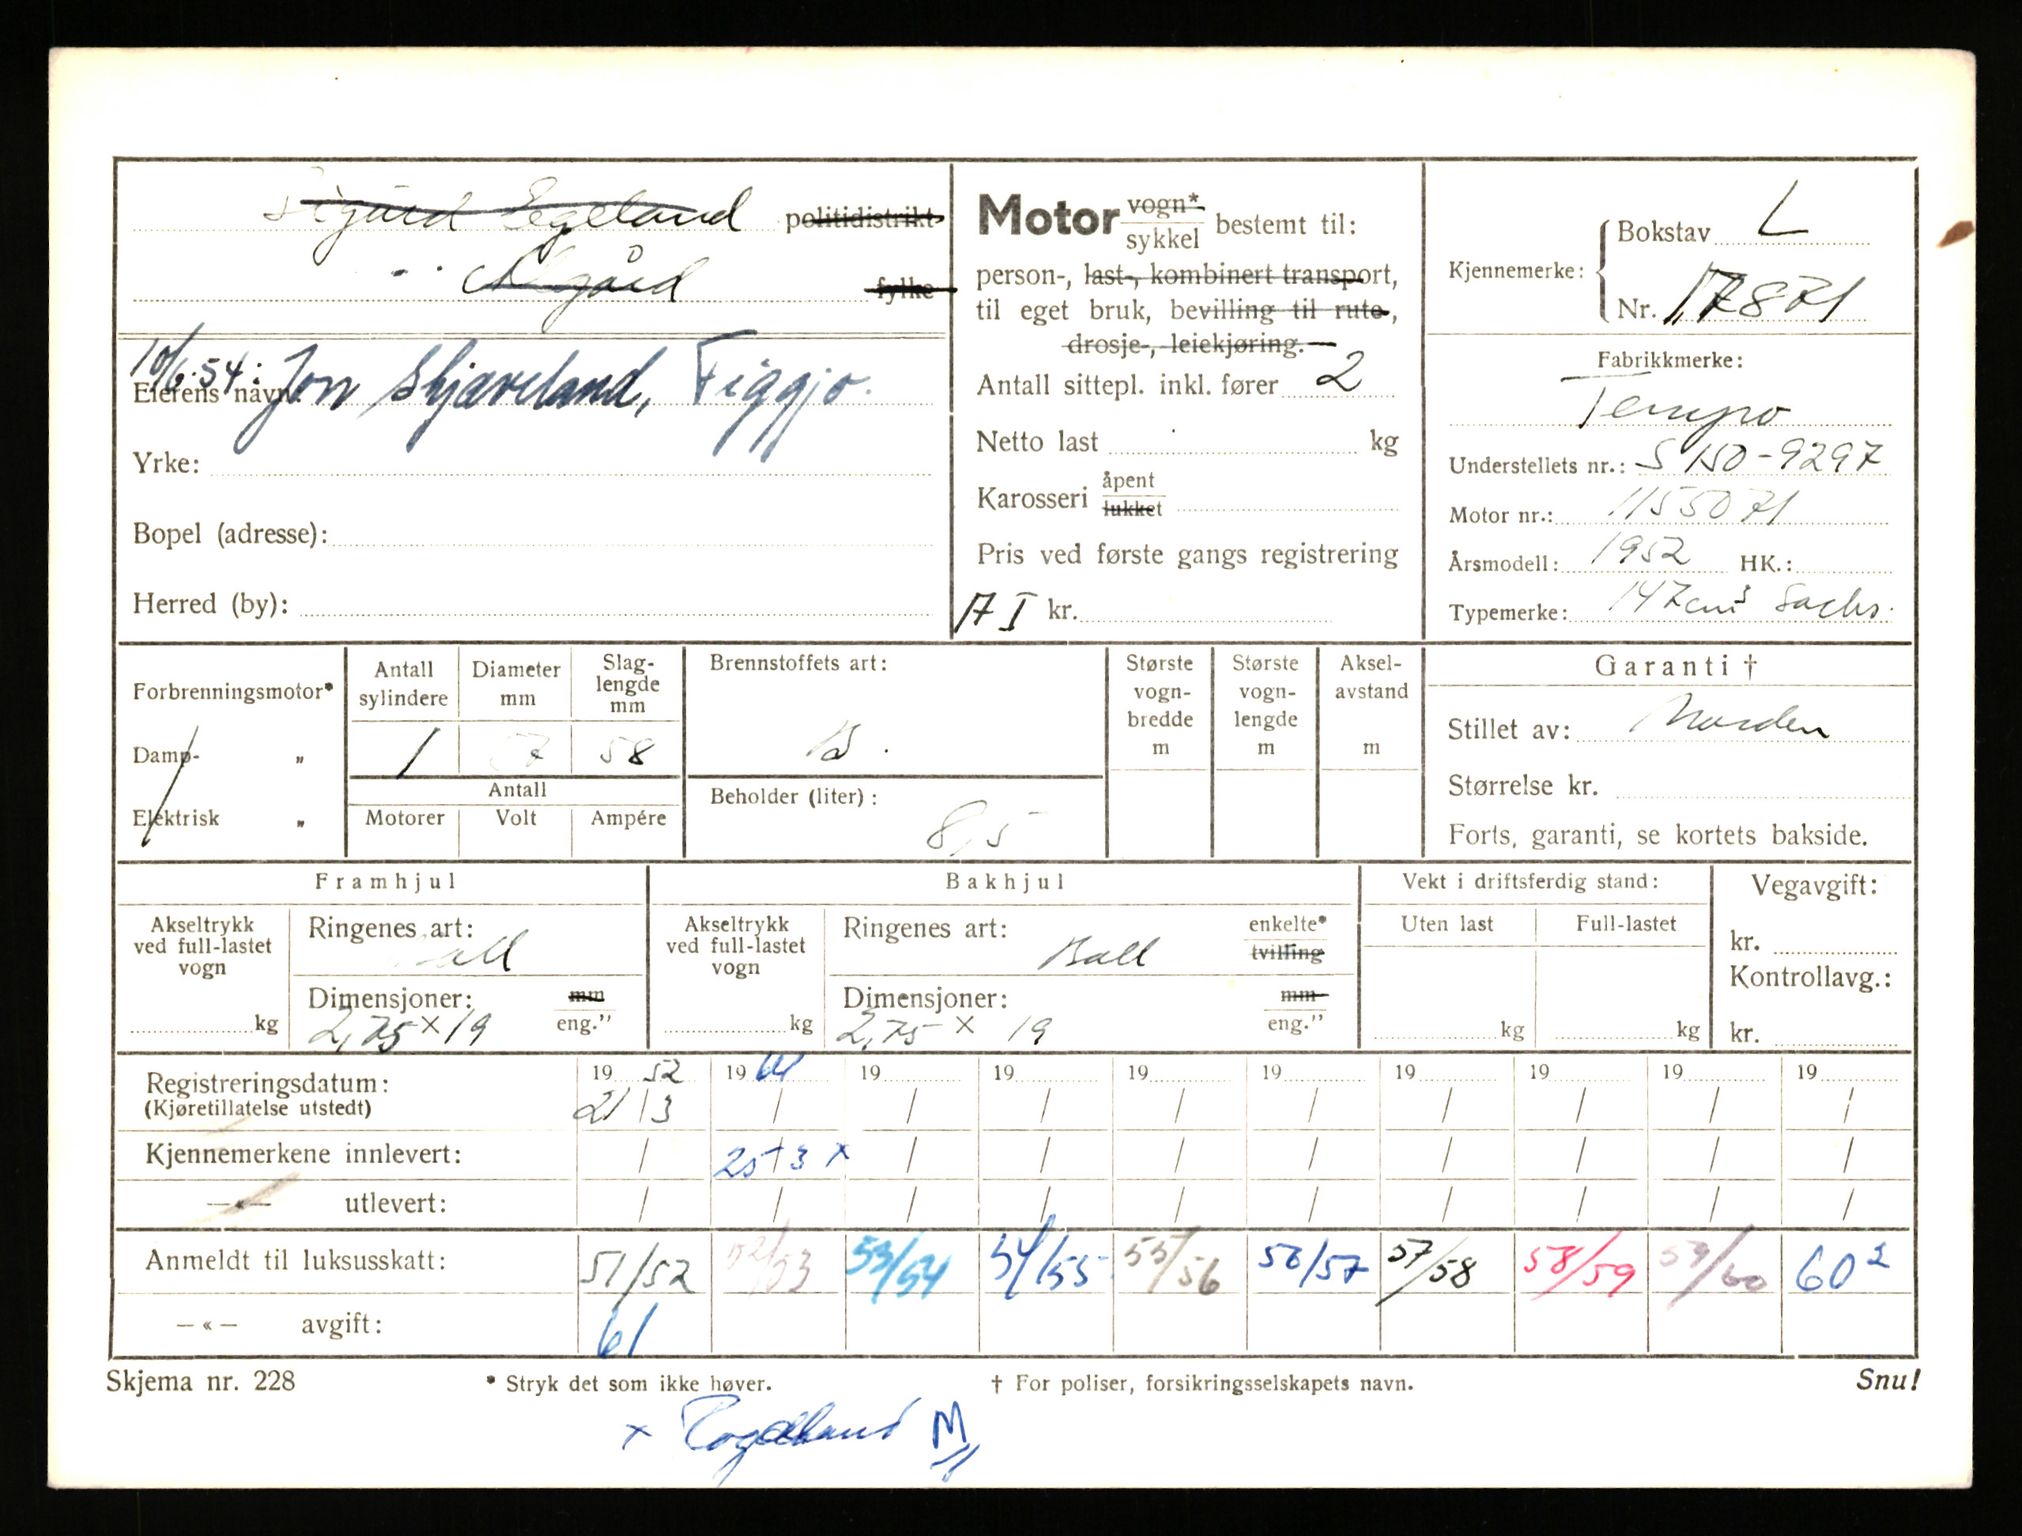 Sigurd Egeland politidistrikt
Ålgård fylke
10/6.54: Jon Skjæveland, Figgjo.
Eierens navn:
Yrke:
Bopel (adresse):
Herred (by):
Motor vogn* sykkel bestemt til:
person-, last-, kombinert transport,
til eget bruk, bevilling til rute,
drosje-, leiekjøring.
Antall sittepl. inkl. fører 2
Netto last kg
Karosseri åpent lukket
Pris ved første gangs registrering
kr.
Kjennemerke: Bokstav L
Nr. 17871
Fabrikkmerke:
Tempo
Understellets nr.: S 150-9297
Motor nr.: 1155071
Årsmodell: 1952 HK.:
Typemerke: 147cm³ Sachs.
Forbrenningsmotor*
Damp- „
Elektrisk „
Antall sylindere
1
Diameter mm
57
Slag- lengde mm
58
Antall
Motorer Volt Ampére
Brennstoffets art:
B.
Beholder (liter):
8,5
Største vogn- bredde m
Største vogn- lengde m
Aksel- avstand m
Garanti †
Stillet av: Norden
Størrelse kr.
Forts, garanti, se kortets bakside.
Framhjul
Akseltrykk ved full-lastet vogn
kg
Ringenes art:
Ball
Dimensjoner: mm
2,75 × 19 eng."
Bakhjul
Akseltrykk ved full-lastet vogn
kg
Ringenes art: enkelte*
Ball tvilling
Dimensjoner: mm
2,75 × 19 eng."
Vekt i driftsferdig stand:
Uten last Full-lastet
kg kg
Vegavgift:
kr.
Kontrollavg.:
kr.
Registreringsdatum: 19 52 19 61 19 19 19 19 19 19 19 19
(Kjøretillatelse utstedt) 21/3 / / / / / / / / /
Kjennemerkene innlevert: / 25/3 x / / / / / / / /
—«— utlevert: / / / / / / / / / /
Anmeldt til luksusskatt: 51/52 52/53 53/54 54/55 55/56 56/57 57/58 58/59 59/60 60²
—«— avgift: 61
Skjema nr. 228 * Stryk det som ikke høver. † For poliser, forsikringsselskapets navn. Snu!
x Rogaland M